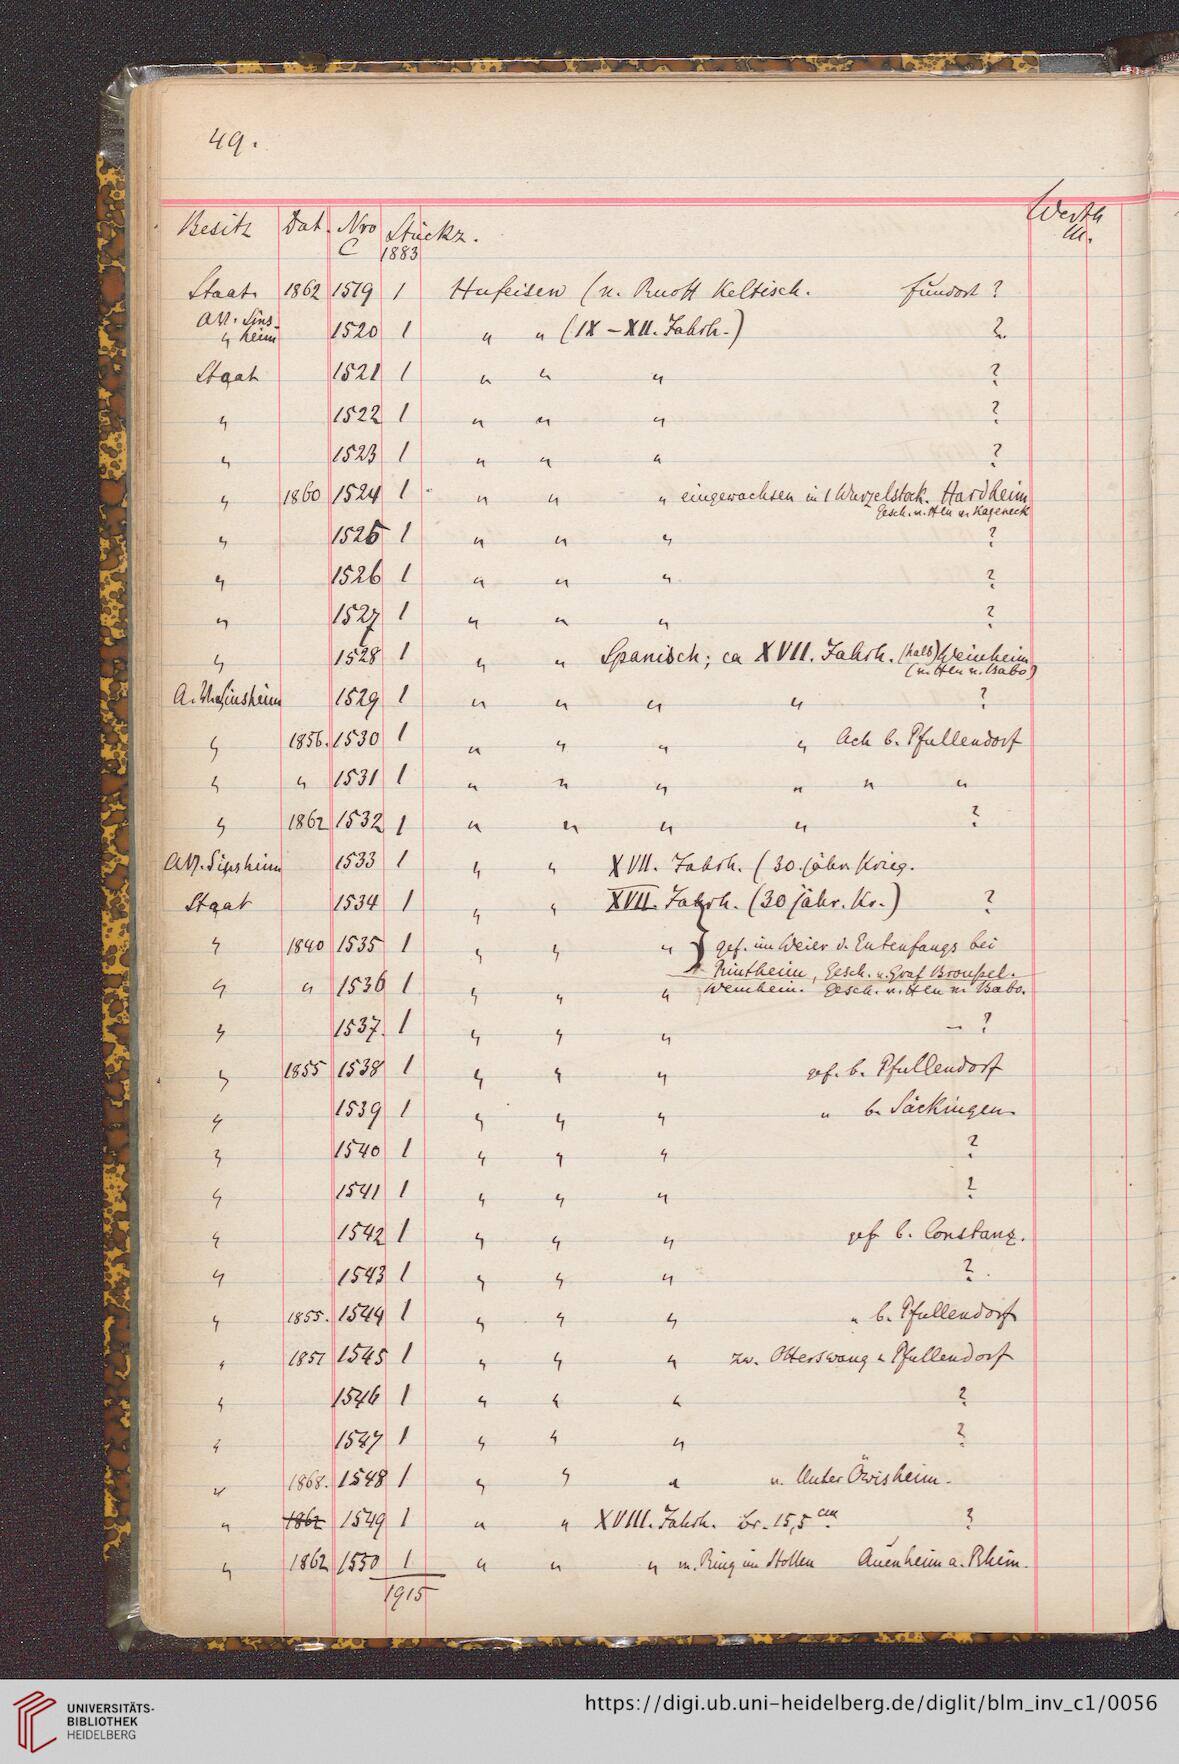 49.
Besitz Dat. Nro C Stückz. Werth M.
1883
Staat 1862 1519 1 Hufeisen (n. Ruoff Keltisch. Fundort ?
AV. Sins-
" heim 1520 1 " " (IX – XII. Jahrh.) ?
Staat 1521 1 " " " ?
" 1522 1 " " " ?
" 1523 1 " " " ?
" 1860 1524 1 " " " eingewachsen in 1 Wurzelstock. Hardheim
Gesch. v. Hn v. Kageneck
" 1525 1 " " " ?
" 1526 1 " " " ?
" 1527 1 " " " ?
" 1528 1 " " Spanisch; ca XVII. Jahrh. (halb) Weinheim
(v. Hn v. Babo)
Sinsheim 1529 1 " " " " ?
" 1856. 1530 1 " " " " Ach b. Pfullendorf
" " 1531 1 " " " " " "
" 1862 1532 1 " " " " ?
AV. Sinsheim 1533 1 " " XVII. Jahrh. (30. jähr. Krieg.
Staat 1534 1 " " XVII. Jahrh. (30 jähr. Kr.) ?
" 1840 1535 1 " " " } gef. im Weier d. Entenfangs bei
Rintheim, Gesch. v. Graf Brouſsel.
" " 1536 1 " " " Weinheim. Gesch. v. Hn v. Babo.
" 1537. 1 " " " – ?
" 1855 1538 1 " " " gef. b. Pfullendorf
" 1539 1 " " " " b. Säckingen.
" 1540 1 " " " ?
" 1541 1 " " " ?
" 1542 1 " " " gef. b. Constanz.
" 1543 1 " " " ?
" 1855. 1544 1 " " " " b. Pfullendorf
" 1857 1545 1 " " " zw. Otterswang u Pfullendorf
" 1546 1 " " " ?
" 1547 1 " " " ?
" 1868. 1548 1 " " " v. Unter Öwisheim.
" 1862 1549 1 " " XVIII. Jahrh. br. 15,5 cm ?
" 1862 1550 1 " " " m. Ring im Stollen Auenheim a. Rhein.
1915
UNIVERSITÄTS-
BIBLIOTHEK
HEIDELBERG
https://digi.ub.uni-heidelberg.de/diglit/blm_inv_c1/0056